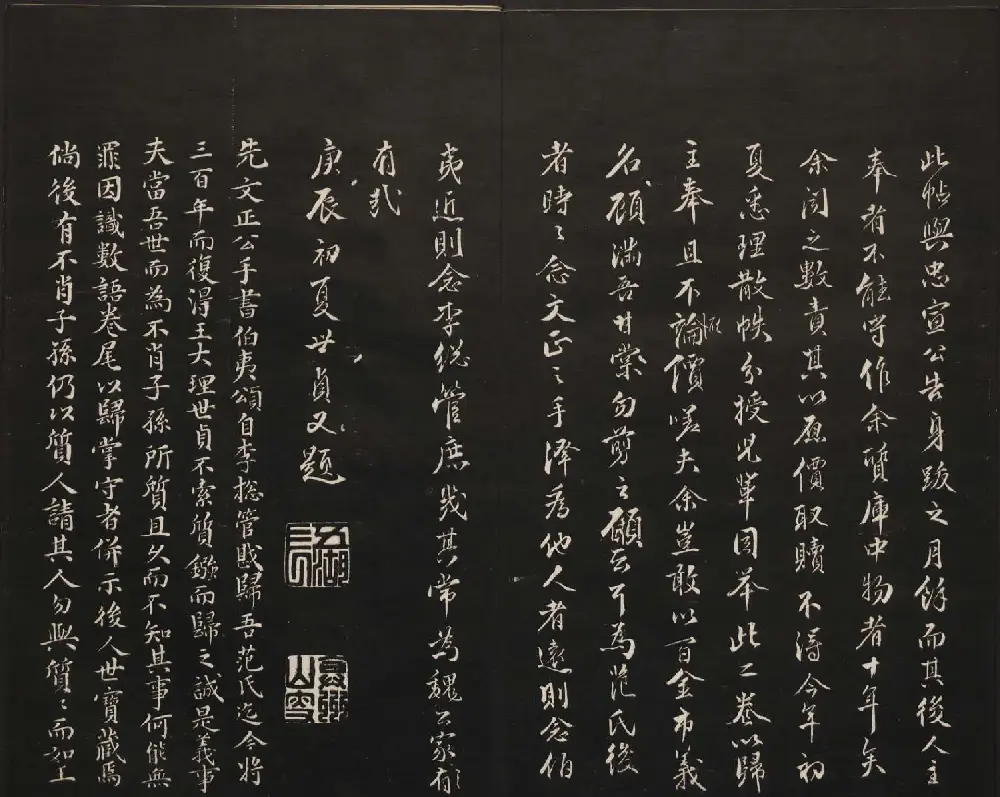 此帖與忠宣公告身跋之月餘而其後人主
奉者不能守作余質庫中物者十年矣
余聞之數責其以原價取贖不得今年初
夏悉理散帙分授兒輩因举此二卷以歸
主奉且不論價嗟夫余豈敢以百金市義
名顧滿吾甘棠勿剪之願云尔為范氏後
者時〻念文正之手澤為他人者遠則念伯
夷近則念李総管庶幾其常為魏公家有
有哉
庚辰初夏世貞又題
先文正公手書伯夷頌自李摠管戡歸吾范氏迄今將
三百年而復淂王大理世貞不索質鏹而歸之誠是義事
夫當吾世而為不肖子孫所質且久而不知其事何能無
罪因識數語卷尾以歸掌守者併示後人世寶藏焉
倘後有不肖子孫仍以質人請其人勿與質〻而如王